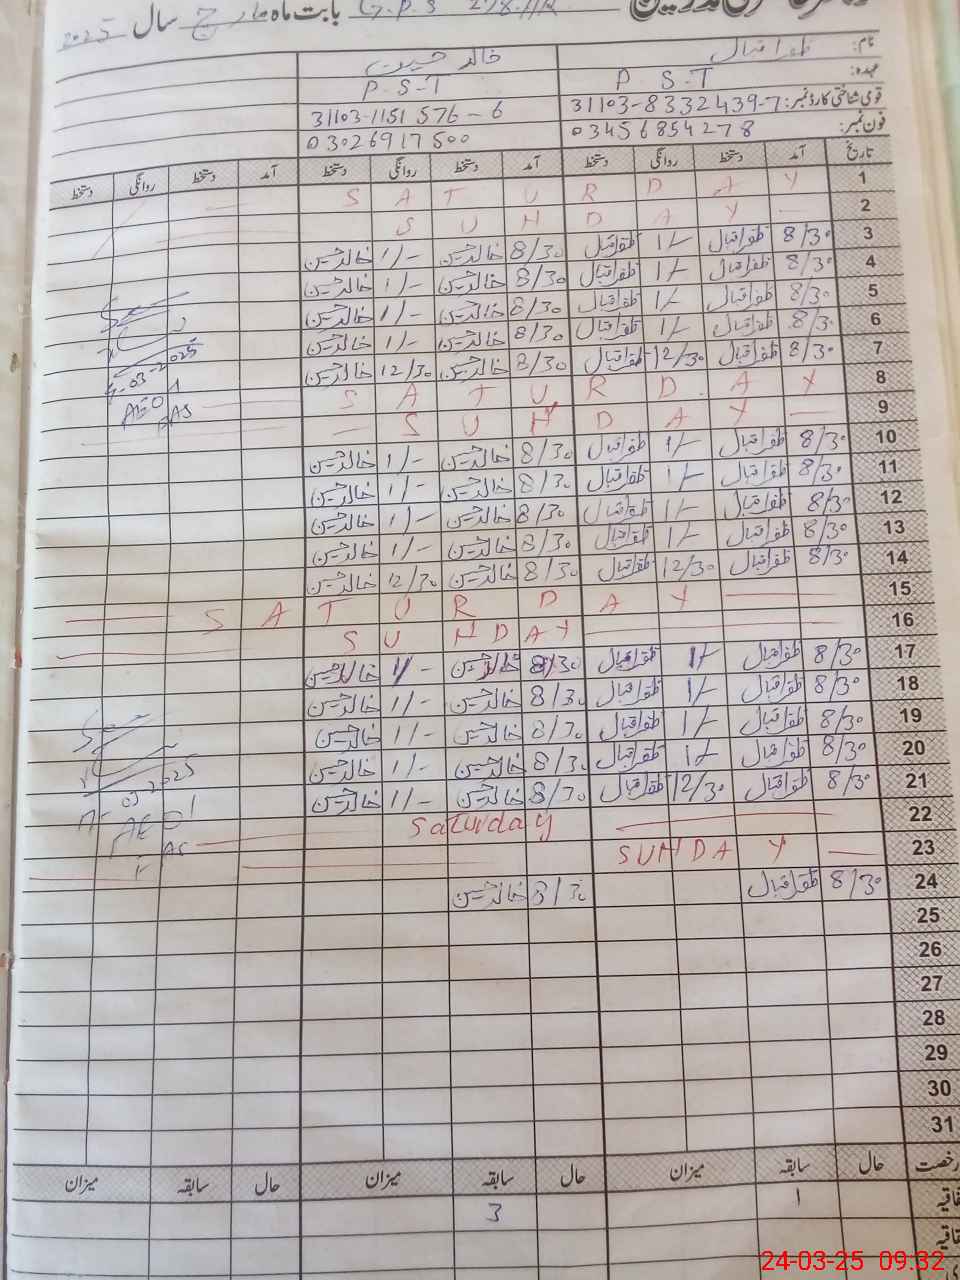 بابت ماہ مارچ سال 2025
نام: ظفر اقبال خالد حسین
عہدہ: P S-T P S-T
قومی شناختی کارڈ نمبر: 31103-8332439-7 31103-1151576-6
فون نمبر: 03456854278 03026917500
تاریخ آمد دستخط روانگی دستخط آمد دستخط روانگی دستخط آمد دستخط روانگی دستخط
1 S A T U R D A Y
2 S U N D A Y
3 8/30 ظفر اقبال 1/- ظفر اقبال 8/30 خالد حسین 1/- خالد حسین
4 8/30 ظفر اقبال 1/- ظفر اقبال 8/30 خالد حسین 1/- خالد حسین
5 8/30 ظفر اقبال 1/- ظفر اقبال 8/30 خالد حسین 1/- خالد حسین
6 8/30 ظفر اقبال 1/- ظفر اقبال 8/30 خالد حسین 1/- خالد حسین
7 8/30 ظفر اقبال 12/30 ظفر اقبال 8/30 خالد حسین 12/30 خالد حسین
8 S A T U R D A Y
9 S U N D A Y
AEO
10 8/30 ظفر اقبال 1/- ظفر اقبال 8/30 خالد حسین 1/- خالد حسین
11 8/30 ظفر اقبال 1/- ظفر اقبال 8/30 خالد حسین 1/- خالد حسین
12 8/30 ظفر اقبال 1/- ظفر اقبال 8/30 خالد حسین 1/- خالد حسین
13 8/30 ظفر اقبال 1/- ظفر اقبال 8/30 خالد حسین 1/- خالد حسین
14 8/30 ظفر اقبال 12/30 ظفر اقبال 8/30 خالد حسین 12/30 خالد حسین
15 S A T U R D A Y
16 S U N D A Y
17 8/30 ظفر اقبال 1/- ظفر اقبال 8/30 خالد حسین 1/- خالد حسین
18 8/30 ظفر اقبال 1/- ظفر اقبال 8/30 خالد حسین 1/- خالد حسین
19 8/30 ظفر اقبال 1/- ظفر اقبال 8/30 خالد حسین 1/- خالد حسین
20 8/30 ظفر اقبال 1/- ظفر اقبال 8/30 خالد حسین 1/- خالد حسین
21 8/30 ظفر اقبال 12/30 ظفر اقبال 8/30 خالد حسین 1/- خالد حسین
22 Saturday
23 SUNDAY
24 8/30 ظفر اقبال 8/30 خالد حسین
25
26
27
28
29
30
31
رخصت حال سابقہ میزان حال سابقہ میزان حال سابقہ میزان
1 3
24-03-25 09:32